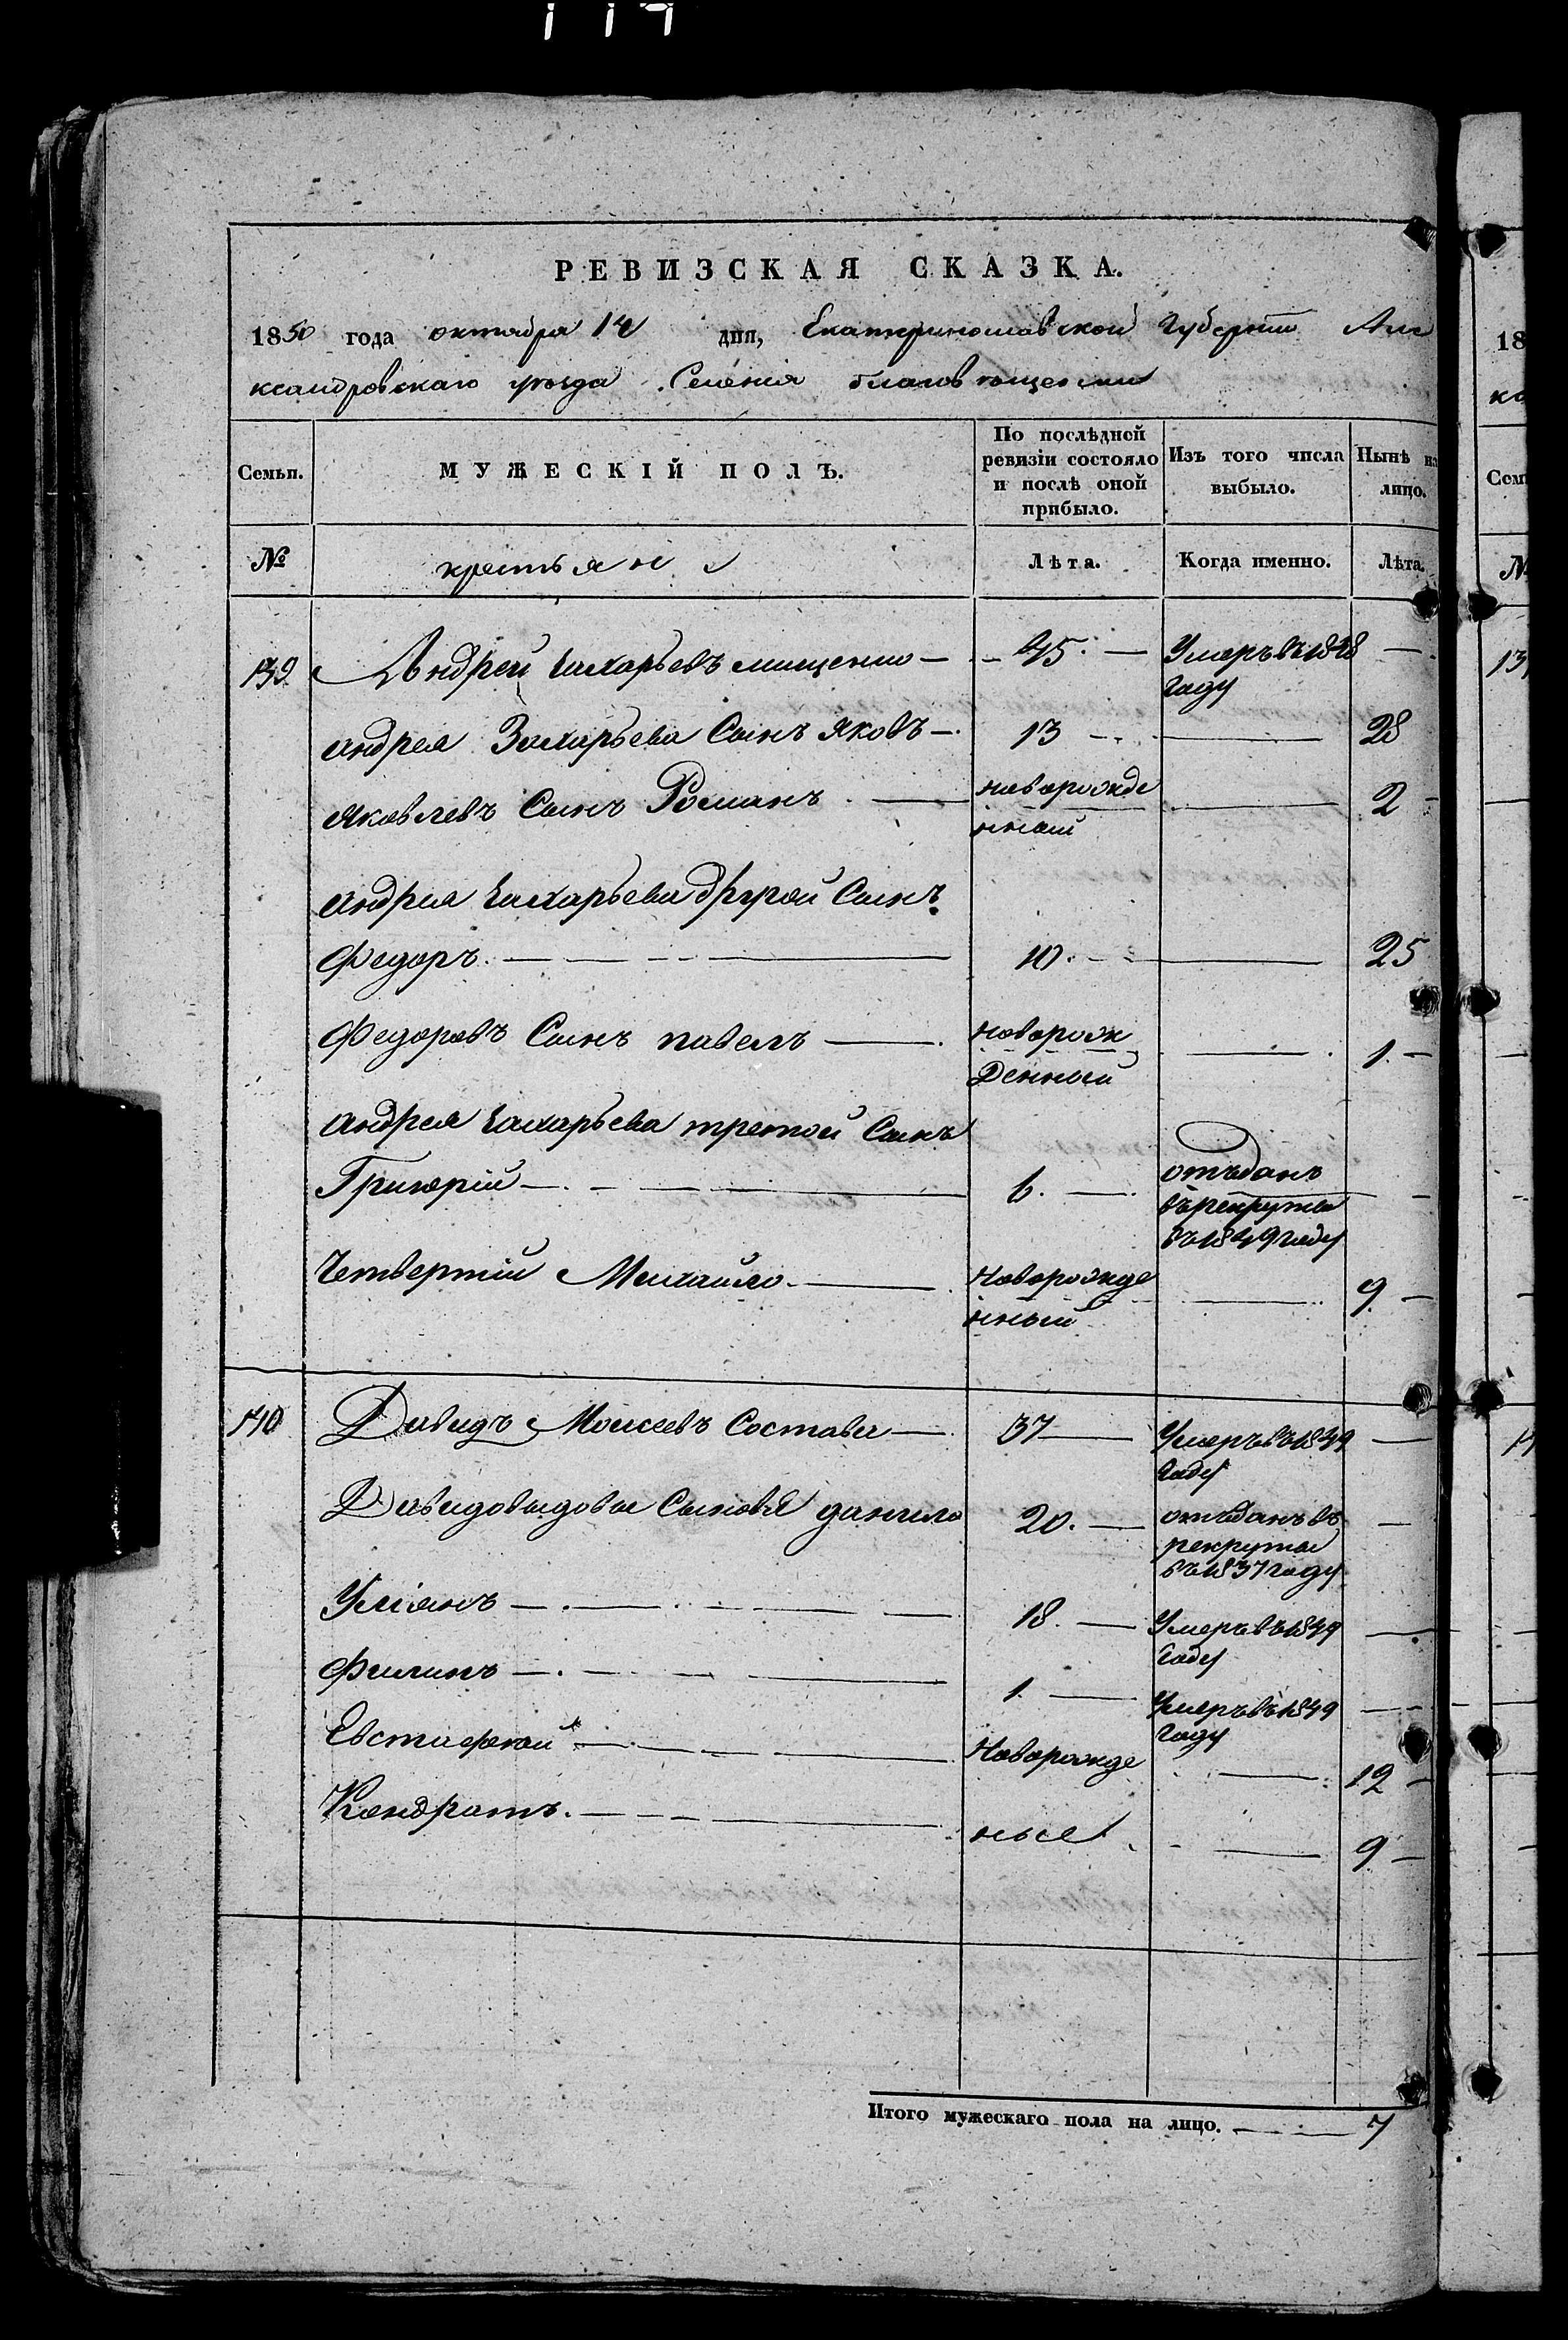 РЕВИЗСКАЯ СКАЗКА.
1850 года октября 14 дня, Екатеринославской Губернии Але
ксандровскаго уѣзда Селенія благовѣщенки
Семьи.
МУЖЕСКІЙ ПОЛЪ.
По послѣдней ревизіи состояло и послѣ оной прибыло.
Изъ того числа выбыло.
Нынѣ на лицо.
№ крестьяне Лѣта. Когда именно. Лѣта.
139 Андрей Захарьевъ мищенко — 45. — Умеръ въ 1848 —
году
Андрея Захарьева Сынъ Яковъ — 13 — 28
Яковлевъ Сынъ Романъ — новорожде — 2
нный
Андрея Захарьева другой Сынъ
Федоръ — 10. — 25
Федоровъ Сынъ павелъ — новорож — 1. —
денный
Андрея Захарьева третой Сынъ
Григорій — 6. — отъданъ —
въ рекруты
въ 1849 году
Четвертій Михайло — Новорожде — 9 —
нный
140 Давидъ Моисеевъ Состава — 37 — Умеръ въ 1849 —
году
Давидовыдовы Сыновя данило 20. — отъданъ въ —
рекруты
въ 1837 году
Уліянъ — 18. — Умеръ въ 1849 —
году
Филипъ — 1. — Умеръ въ 1849 —
году
Евстафяй — Новорожде — 12 —
Кондратъ — ные — 9 —
Итого мужескаго пола на лицо. — 7